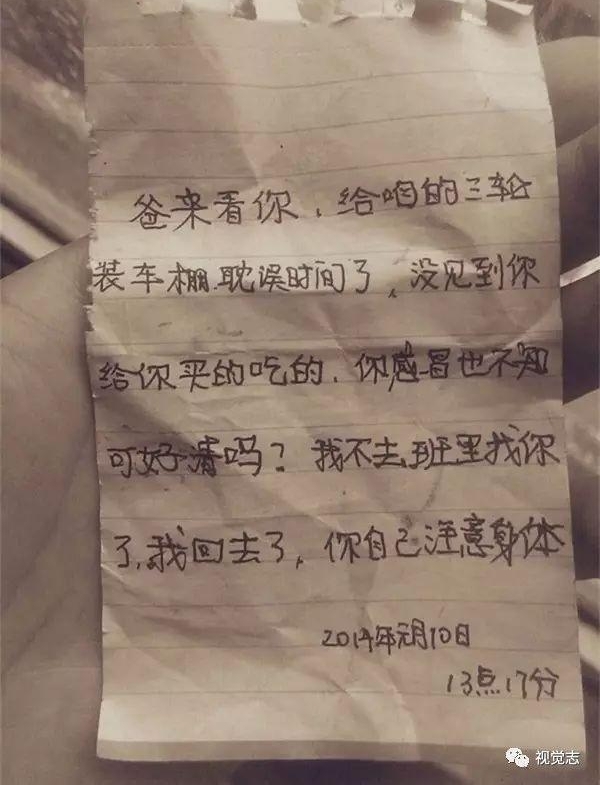 爸来看你，给咱的三轮
装车棚.耽误时间了，没见到你
给你买的吃的，你感冒也不知
可好清吗？我不去班里找你
了，我回去了，你自己注意身体
2014年元月10日
13点17分
视觉志